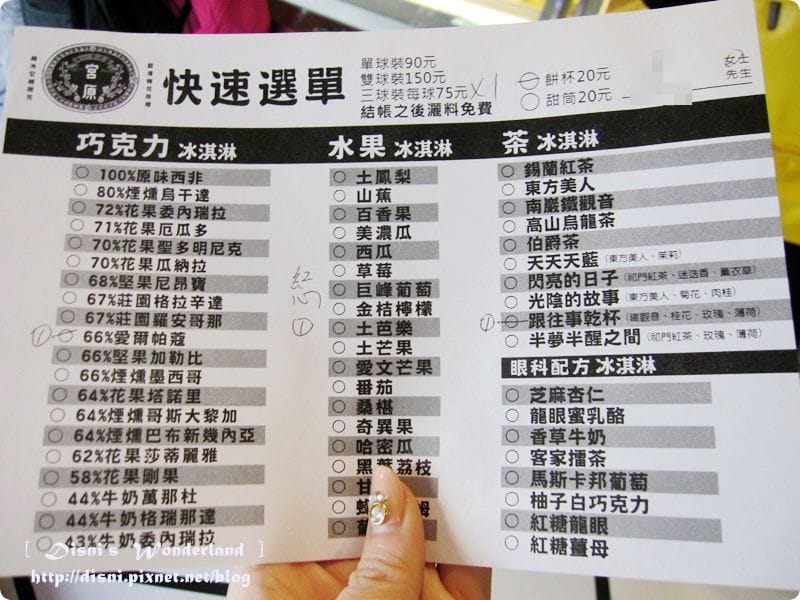 宮原
快速選單
單球裝90元
雙球裝150元
三球裝每球75元 X1
結帳之後灑料免費
餅杯20元
甜筒20元
女士
先生
巧克力 冰淇淋
100%原味西非
80%煙燻烏干達
72%花果委內瑞拉
71%花果厄瓜多
70%花果聖多明尼克
70%花果瓜納拉
68%堅果尼昂寶
67%莊園格拉辛達
67%莊園羅安哥那
① 66%愛爾帕蔻
66%堅果加勒比
66%煙燻墨西哥
64%花果塔諾里
64%煙燻哥斯大黎加
64%煙燻巴布新幾內亞
62%花果莎蒂麗雅
58%花果剛果
44%牛奶萬那杜
44%牛奶格瑞那達
43%牛奶委內瑞拉
水果 冰淇淋
土鳳梨
山蕉
百香果
美濃瓜
西瓜
草莓
巨峰葡萄
金桔檸檬
① 土芭樂
土芒果
愛文芒果
番茄
桑椹
奇異果
哈密瓜
黑葉荔枝
甘
葡
茶 冰淇淋
錫蘭紅茶
東方美人
南巖鐵觀音
高山烏龍茶
伯爵茶
天天天藍（東方美人、茉莉）
閃亮的日子（祁門紅茶、迷迭香、薰衣草）
光陰的故事（東方美人、菊花、肉桂）
① 跟往事乾杯（鐵觀音、桂花、玫瑰、薄荷）
半夢半醒之間（祁門紅茶、玫瑰、薄荷）
眼科配方 冰淇淋
芝麻杏仁
龍眼蜜乳酪
香草牛奶
客家擂茶
馬斯卡邦葡萄
柚子白巧克力
紅糖龍眼
紅糖薑母
[ Disni's Wonderland ]
http://disni.pixnet.net/blog